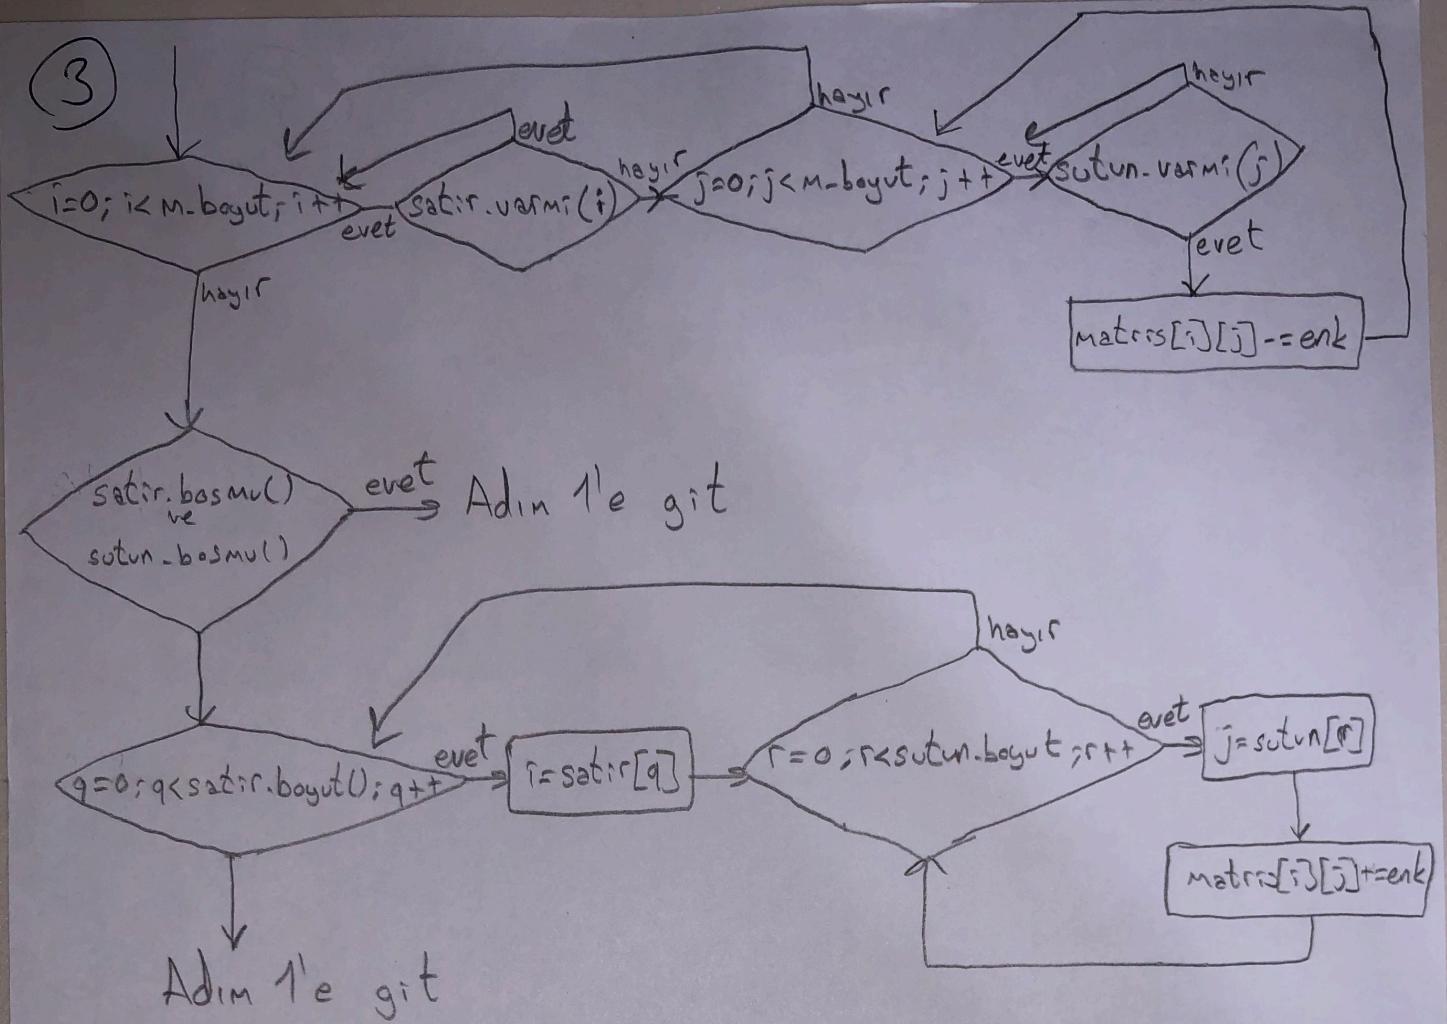 3
i=0; i< m-boyut; i++
evet
hayır
satir.varmi(i)
evet
hayır
j=0; j<m-boyut; j++
hayır
evet
sutun.varmi(j)
hayır
evet
matris[i][j]-=enk
satir.bosmu()
ve
sutun.bosmu()
evet
Adım 1'e git
q=0; q<satir.boyut(); q++
evet
i=satir[q]
r=0; r<sutun.boyut; r++
hayır
evet
j=sutun[r]
matris[i][j]+=enk
Adım 1'e git